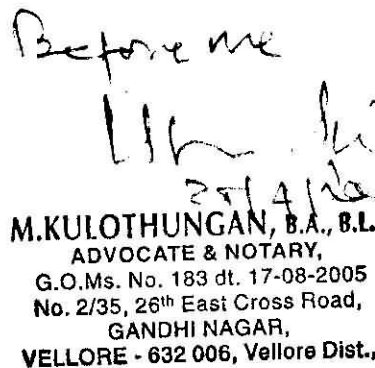 Before me
M.KULOTHUNGAN, B.A., B.L.
ADVOCATE & NOTARY,
G.O.Ms. No. 183 dt. 17-08-2005
No. 2/35, 26th East Cross Road,
GANDHI NAGAR,
VELLORE - 632 006, Vellore Dist.,